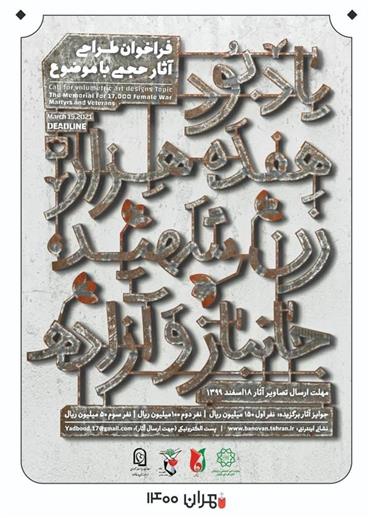 فراخوان طراحی
آثار حجمی با موضوع
Call for volumetric art designs Topic
The Memorial For 17,000 Female War
Martyrs and Veterans
March 15.2021
DEADLINE
یادبود
هفده هزار
زن شهیده
جانباز و آزاده
مهلت ارسال تصاویر آثار ۱۸ اسفند ۱۳۹۹
جوایز آثار برگزیده: نفر اول ۱۵۰ میلیون ریال | نفر دوم ۱۰۰ میلیون ریال | نفر سوم ۵۰ میلیون ریال
نشانی اینترنتی: www.banovan.tehran.ir | پست الکترونیکی (جهت ارسال آثار): Yadbood.17@gmail.com
تهران ۱۴۰۰